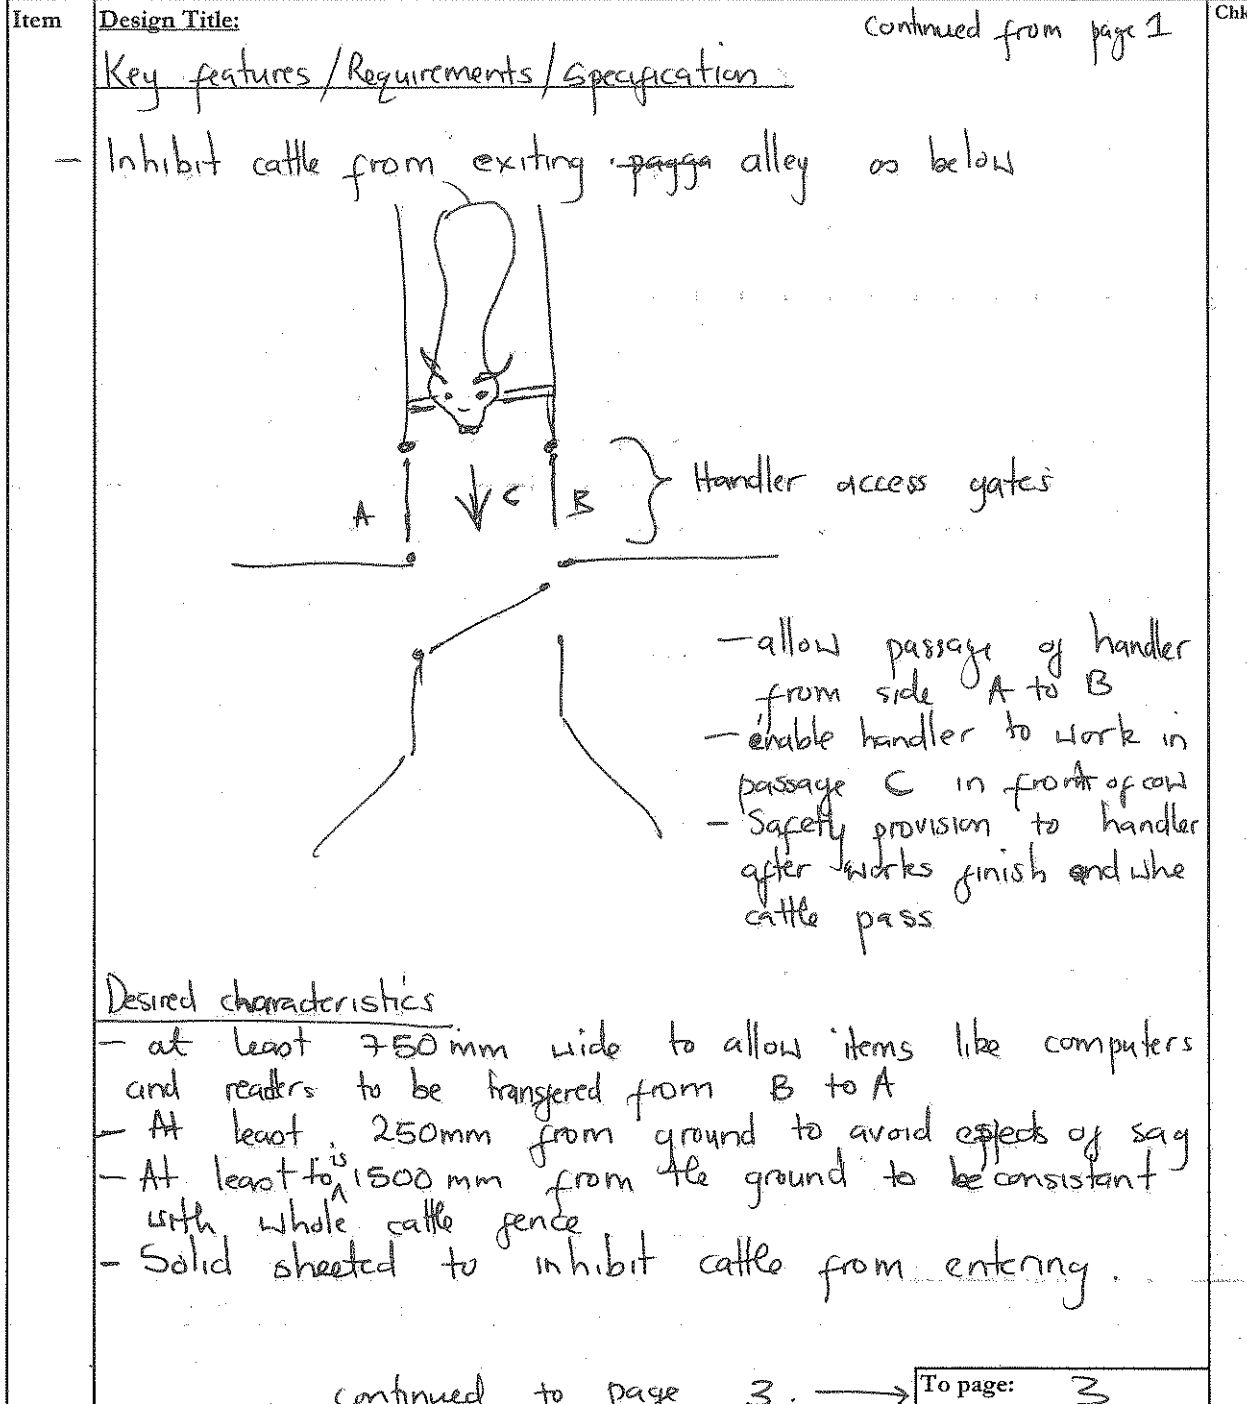 Item
Design Title:
Continued from page 1
Chk
Key features/Requirements/Specification
- Inhibit cattle from exiting pagga alley as below
Handler access gates
A
C
B
- allow passage of handler
from side A to B
- enable handler to work in
passage C in front of cow
- Safety provision to handler
after works finish and whe
cattle pass
Desired characteristics
- at least 750mm wide to allow items like computers
and readers to be transfered from B to A
- At least 250mm from ground to avoid effects of sag
- At least to is 1500 mm from the ground to be consistant
with whole cattle fence
- Solid sheeted to inhibit cattle from entering.
continued to page 3. →
To page: 3